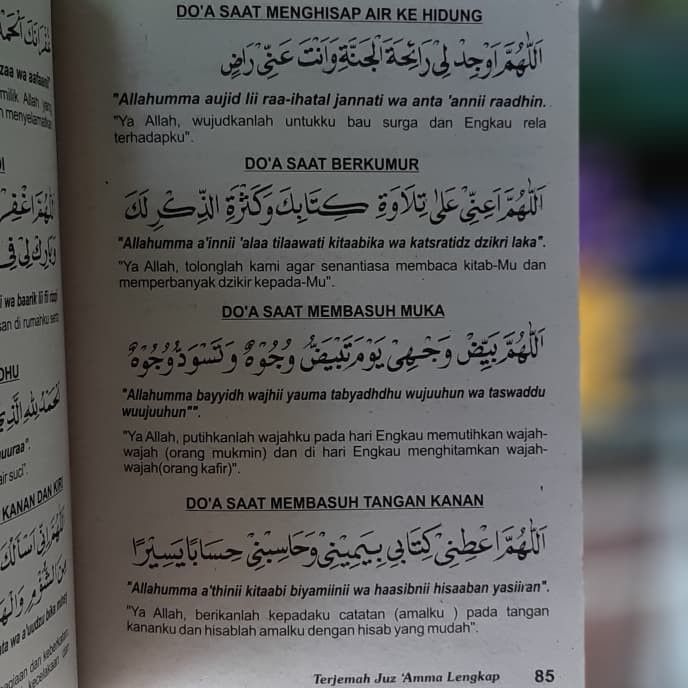 DO'A SAAT MENGHISAP AIR KE HIDUNG
اَللّٰهُمَّ اَوْجِدْ لِيْ رَائِحَةَ الْجَنَّةِ وَاَنْتَ عَنِّيْ رَاضٍ
"Allahumma aujid lii raa-ihatal jannati wa anta 'annii raadhin.
"Ya Allah, wujudkanlah untukku bau surga dan Engkau rela
terhadapku".
DO'A SAAT BERKUMUR
اَللّٰهُمَّ اَعِنِّيْ عَلَى تِلَاوَةِ كِتَابِكَ وَكَثْرَةِ الذِّكْرِ لَكَ
"Allahumma a'innii 'alaa tilaawati kitaabika wa katsratidz dzikri laka".
"Ya Allah, tolonglah kami agar senantiasa membaca kitab-Mu dan
memperbanyak dzikir kepada-Mu".
DO'A SAAT MEMBASUH MUKA
اَللّٰهُمَّ بَيِّضْ وَجْهِيْ يَوْمَ تَبْيَضُّ وُجُوْهٌ وَتَسْوَدُّ وُجُوْهٌ
"Allahumma bayyidh wajhii yauma tabyadhdhu wujuuhun wa taswaddu
wuujuuhun"".
"Ya Allah, putihkanlah wajahku pada hari Engkau memutihkan wajah-
wajah (orang mukmin) dan di hari Engkau menghitamkan wajah-
wajah(orang kafir)".
DO'A SAAT MEMBASUH TANGAN KANAN
اَللّٰهُمَّ اَعْطِنِيْ كِتَابِيْ بِيَمِيْنِيْ وَحَاسِبْنِيْ حِسَابًا يَسِيْرًا
"Allahumma a'thinii kitaabi biyamiinii wa haasibnii hisaaban yasiiran".
"Ya Allah, berikanlah kepadaku catatan (amalku ) pada tangan
kananku dan hisablah amalku dengan hisab yang mudah".
Terjemah Juz 'Amma Lengkap 85